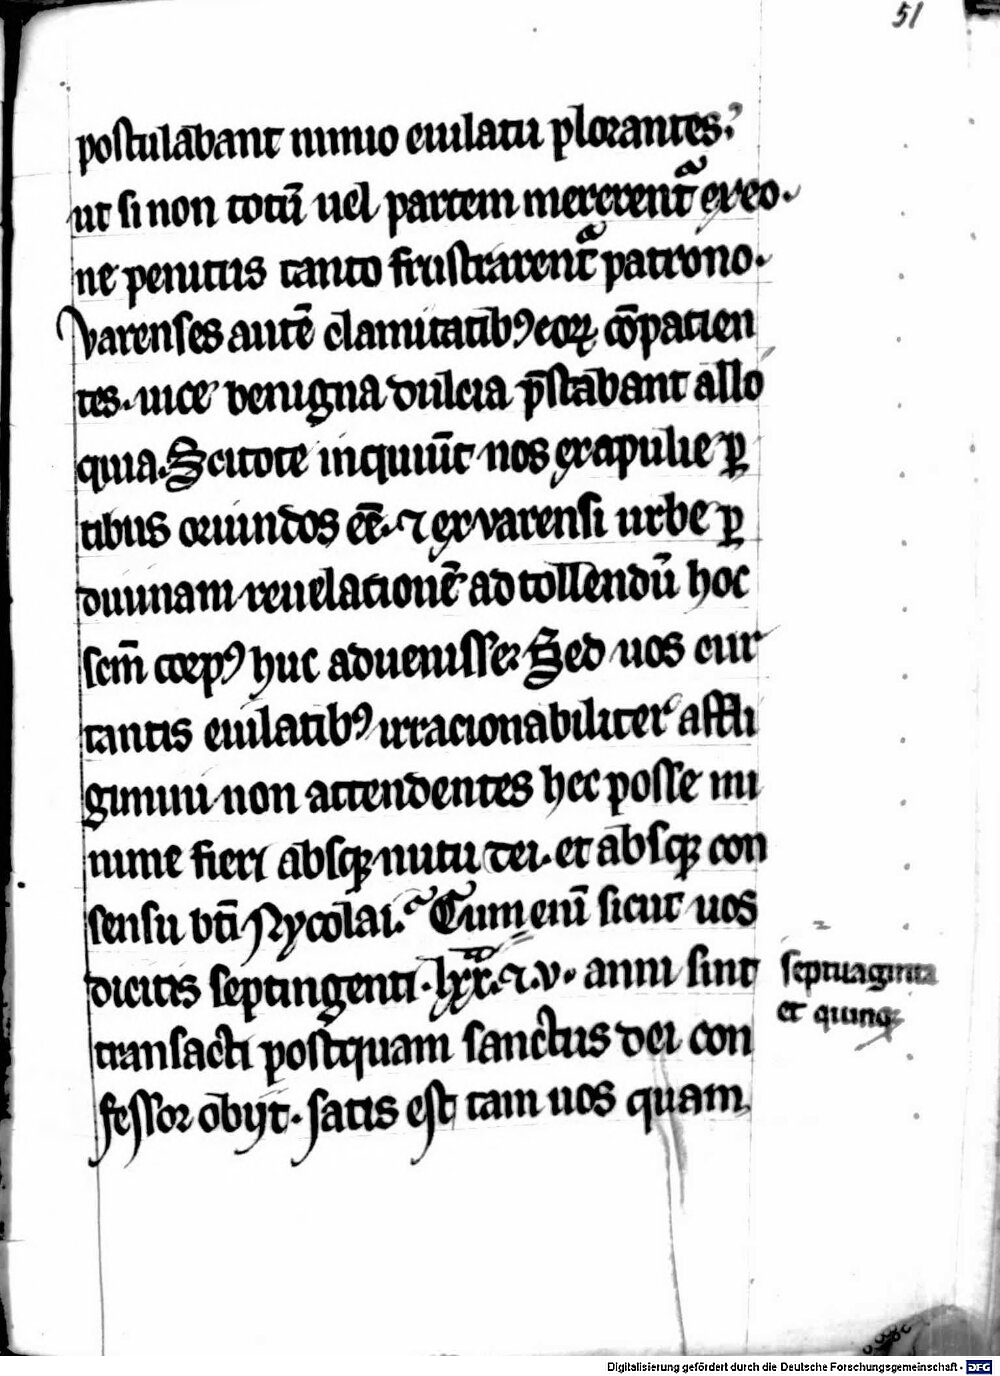 51
postulabant nimio eiulatu plorantes.
ut si non totũ uel partem mererent᷑ ex eo.
ne penitus tanto frustrarent᷑ patrono.
Varenses autẽ clamitatibꝰ eoꝝ cõpacien
tes. uice benigna dulcia p̄stabant allo
quia. Scitote inquiũt nos ex apulie ꝑ
tibus oriundos eẽ. ⁊ ex varensi urbe ꝑ
diuinam reuelationẽ ad tollendũ hoc
scm̄ corpꝰ huc aduenisse. Sed uos cur
tantis eiulatibꝰ irracionabiliter affli
gimini non attendentes hec posse mi
nime fieri absqꝫ nutu dei. et absqꝫ con
sensu bt̄i Nycolai. Cum enĩ sicut uos
dicitis septingenti .lxx. ⁊ .v. anni sint
septuaginta
et quinqꝫ
transacti postquam sanctus dei con
fessor obijt. satis est tam uos quam
Digitalisierung gefördert durch die Deutsche Forschungsgemeinschaft - DFG